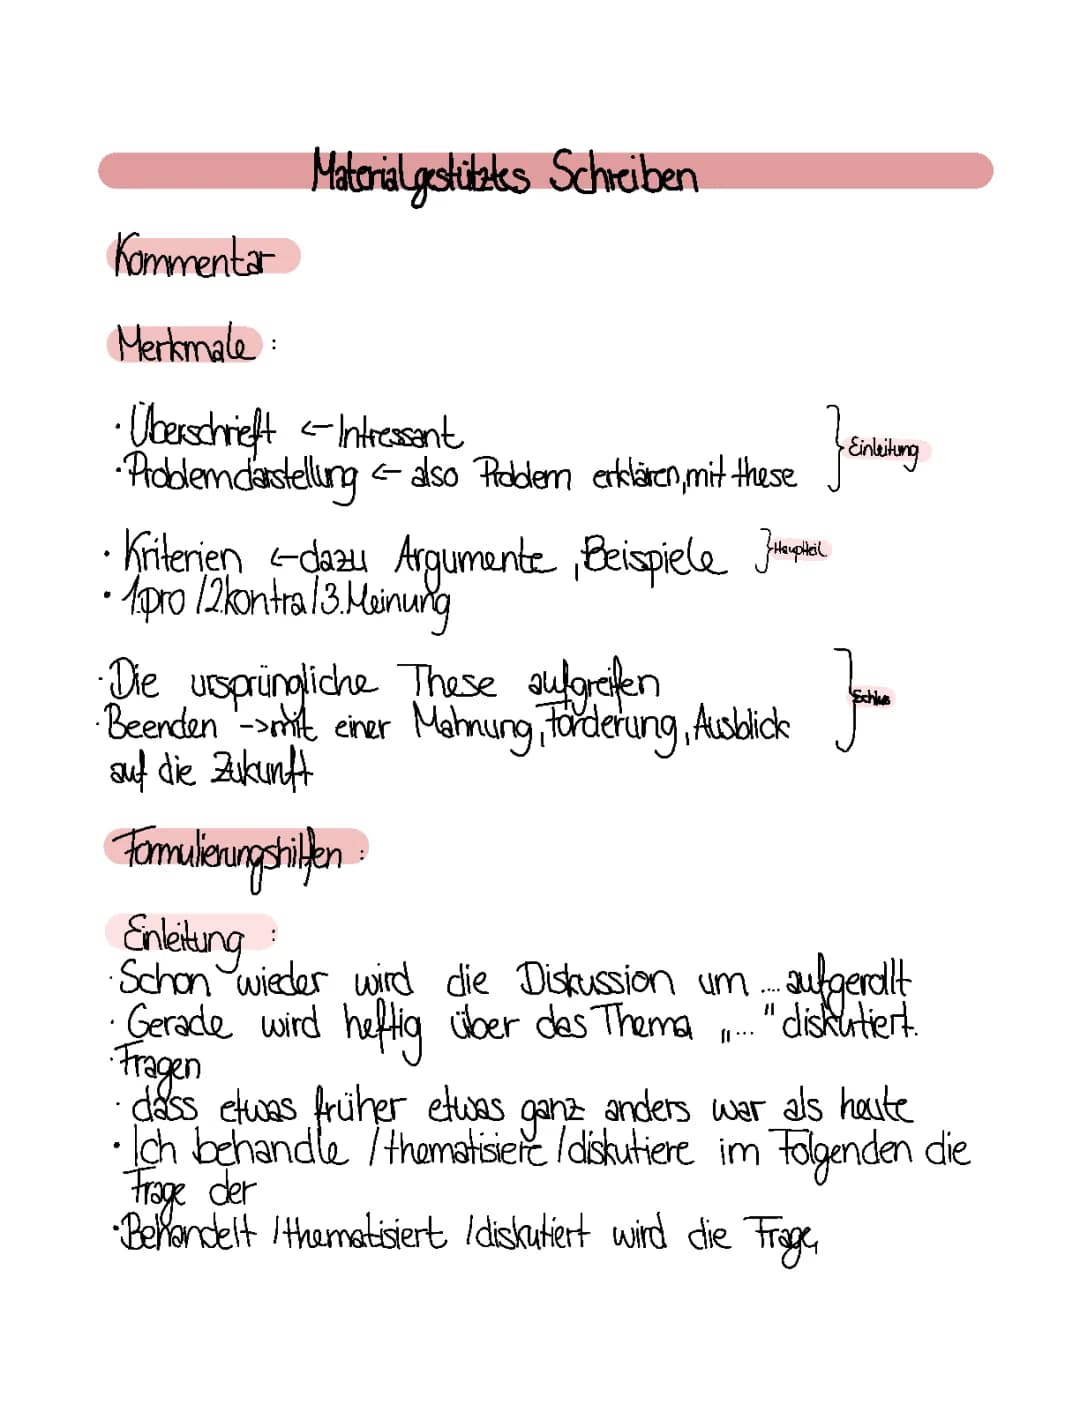 Materialgestütztes Schreiben
Kommentar
Merkmale :
· Überschrieft <- Intressant
· Problemdarstellung <- also Problem erklären, mit these
Einleitung
· Kriterien <- dazu Argumente, Beispiele
Hauptteil
· 1.pro /2.kontra/3.Meinung
· Die ursprüngliche These aufgreifen
· Beenden -> mit einer Mahnung, Forderung, Ausblick
auf die Zukunft
Schluss
Formulierungshilfen :
Einleitung :
· Schon wieder wird die Diskussion um .... aufgerollt
· Gerade wird heftig über das Thema „..." diskutiert.
· Fragen
· dass etwas früher etwas ganz anders war als heute
· Ich behandle /thematisiere /diskutiere im Folgenden die
Frage der
· Behandelt /thematisiert /diskutiert wird die Frage,